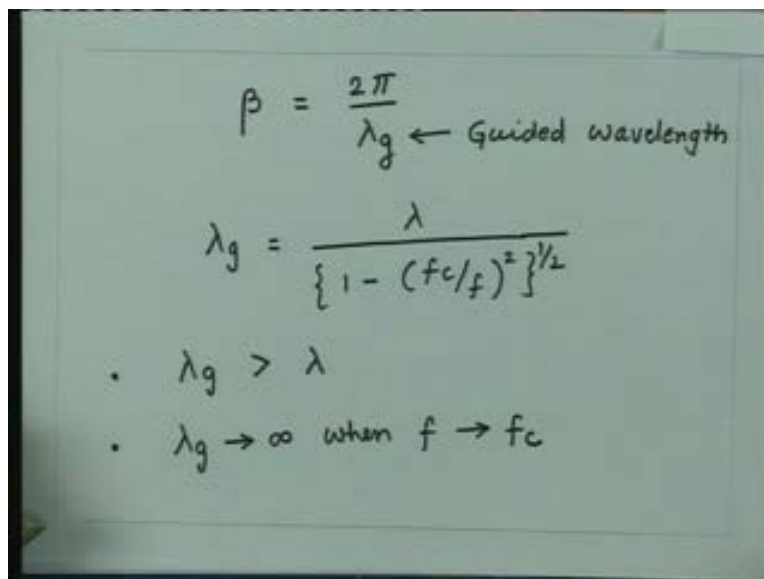 β = 2π / λg ← Guided wavelength
λg = λ / {1 - (fc/f)²}^1/2
• λg > λ
• λg → ∞ when f → fc